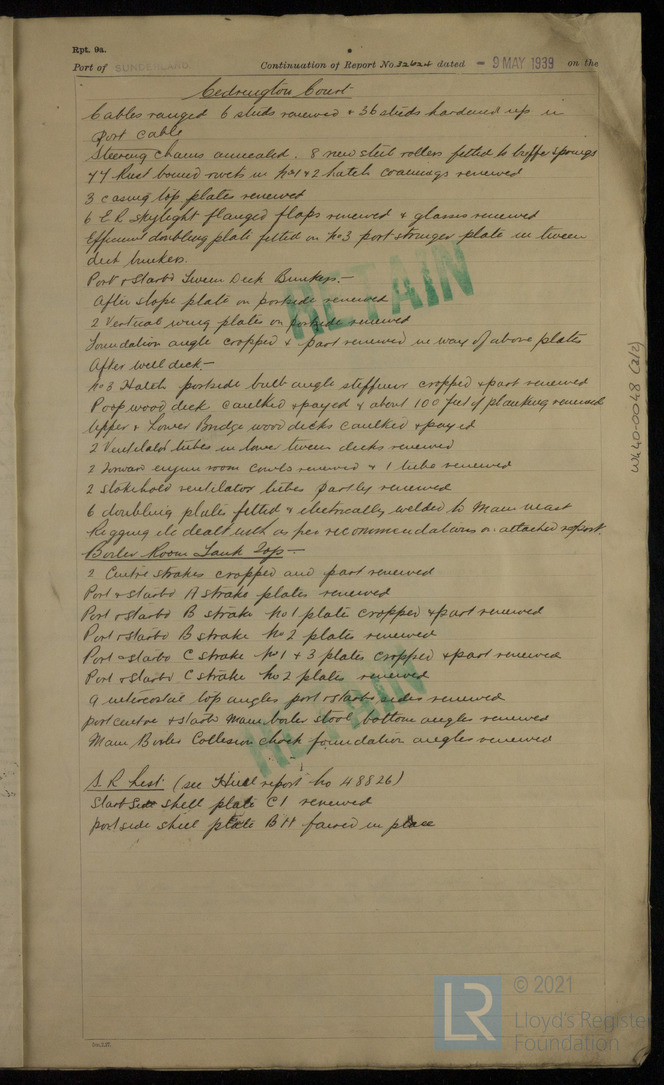 Rpt. 9a.
Port of SUNDERLAND. Continuation of Report No. 32624 dated - 9 MAY 1939 on the
Cedrington Court
Cables ranged 6 studs renewed & 36 studs hardened up in
Port Cable
Steering Chains annealed. 8 new steel rollers fitted to buffer springs
44 Rust bound rivets in No 1 & 2 hatch coamings renewed
3 casing top plates renewed
6 E.R. skylight flanged flaps renewed & glasses renewed
Efficient doubling plate fitted on No 3 port stringer plate in tween
deck bunkers.
Port & Starbd Tween Deck Bunkers.—
After slope plate on portside renewed
2 Vertical wing plates on portside renewed
Foundation angle cropped & part renewed in way of above plates
After well deck.—
No 3 Hatch portside bulb angle stiffener cropped & part renewed
Poop wood deck caulked & payed & about 100 feet of planking renewed
Upper & Lower Bridge wood decks caulked & payed
2 Ventilator tubes in lower tween decks renewed
2 Forward engine room cowls renewed & 1 tube renewed
2 Stokehold ventilator tubes partly renewed
6 doubling plates fitted & electrically welded to Main mast
Rigging etc dealt with as per recommendations on attached report.
Boiler Room Tank Top —
2 Centre strakes cropped and part renewed
Port & starbd A strake plates renewed
Port & starbd B strake No 1 plate cropped & part renewed
Port & starbd B strake No 2 plates renewed
Port & starbd C strake No 1 & 3 plates cropped & part renewed
Port & starbd C strake No 2 plates renewed
9 intercostal top angles port & starbd sides renewed
port centre & starbd main boiler stool bottom angles renewed
Main Boiler Collision chock foundation angles renewed
S.R. List: (see Hull report No 48826)
Starbd Side shell plate C1 renewed
port side shell plate B11 faired in place
RETAIN
RETAIN
W440-0048 (2/2)
© 2021
LR
Lloyd's Register
Foundation